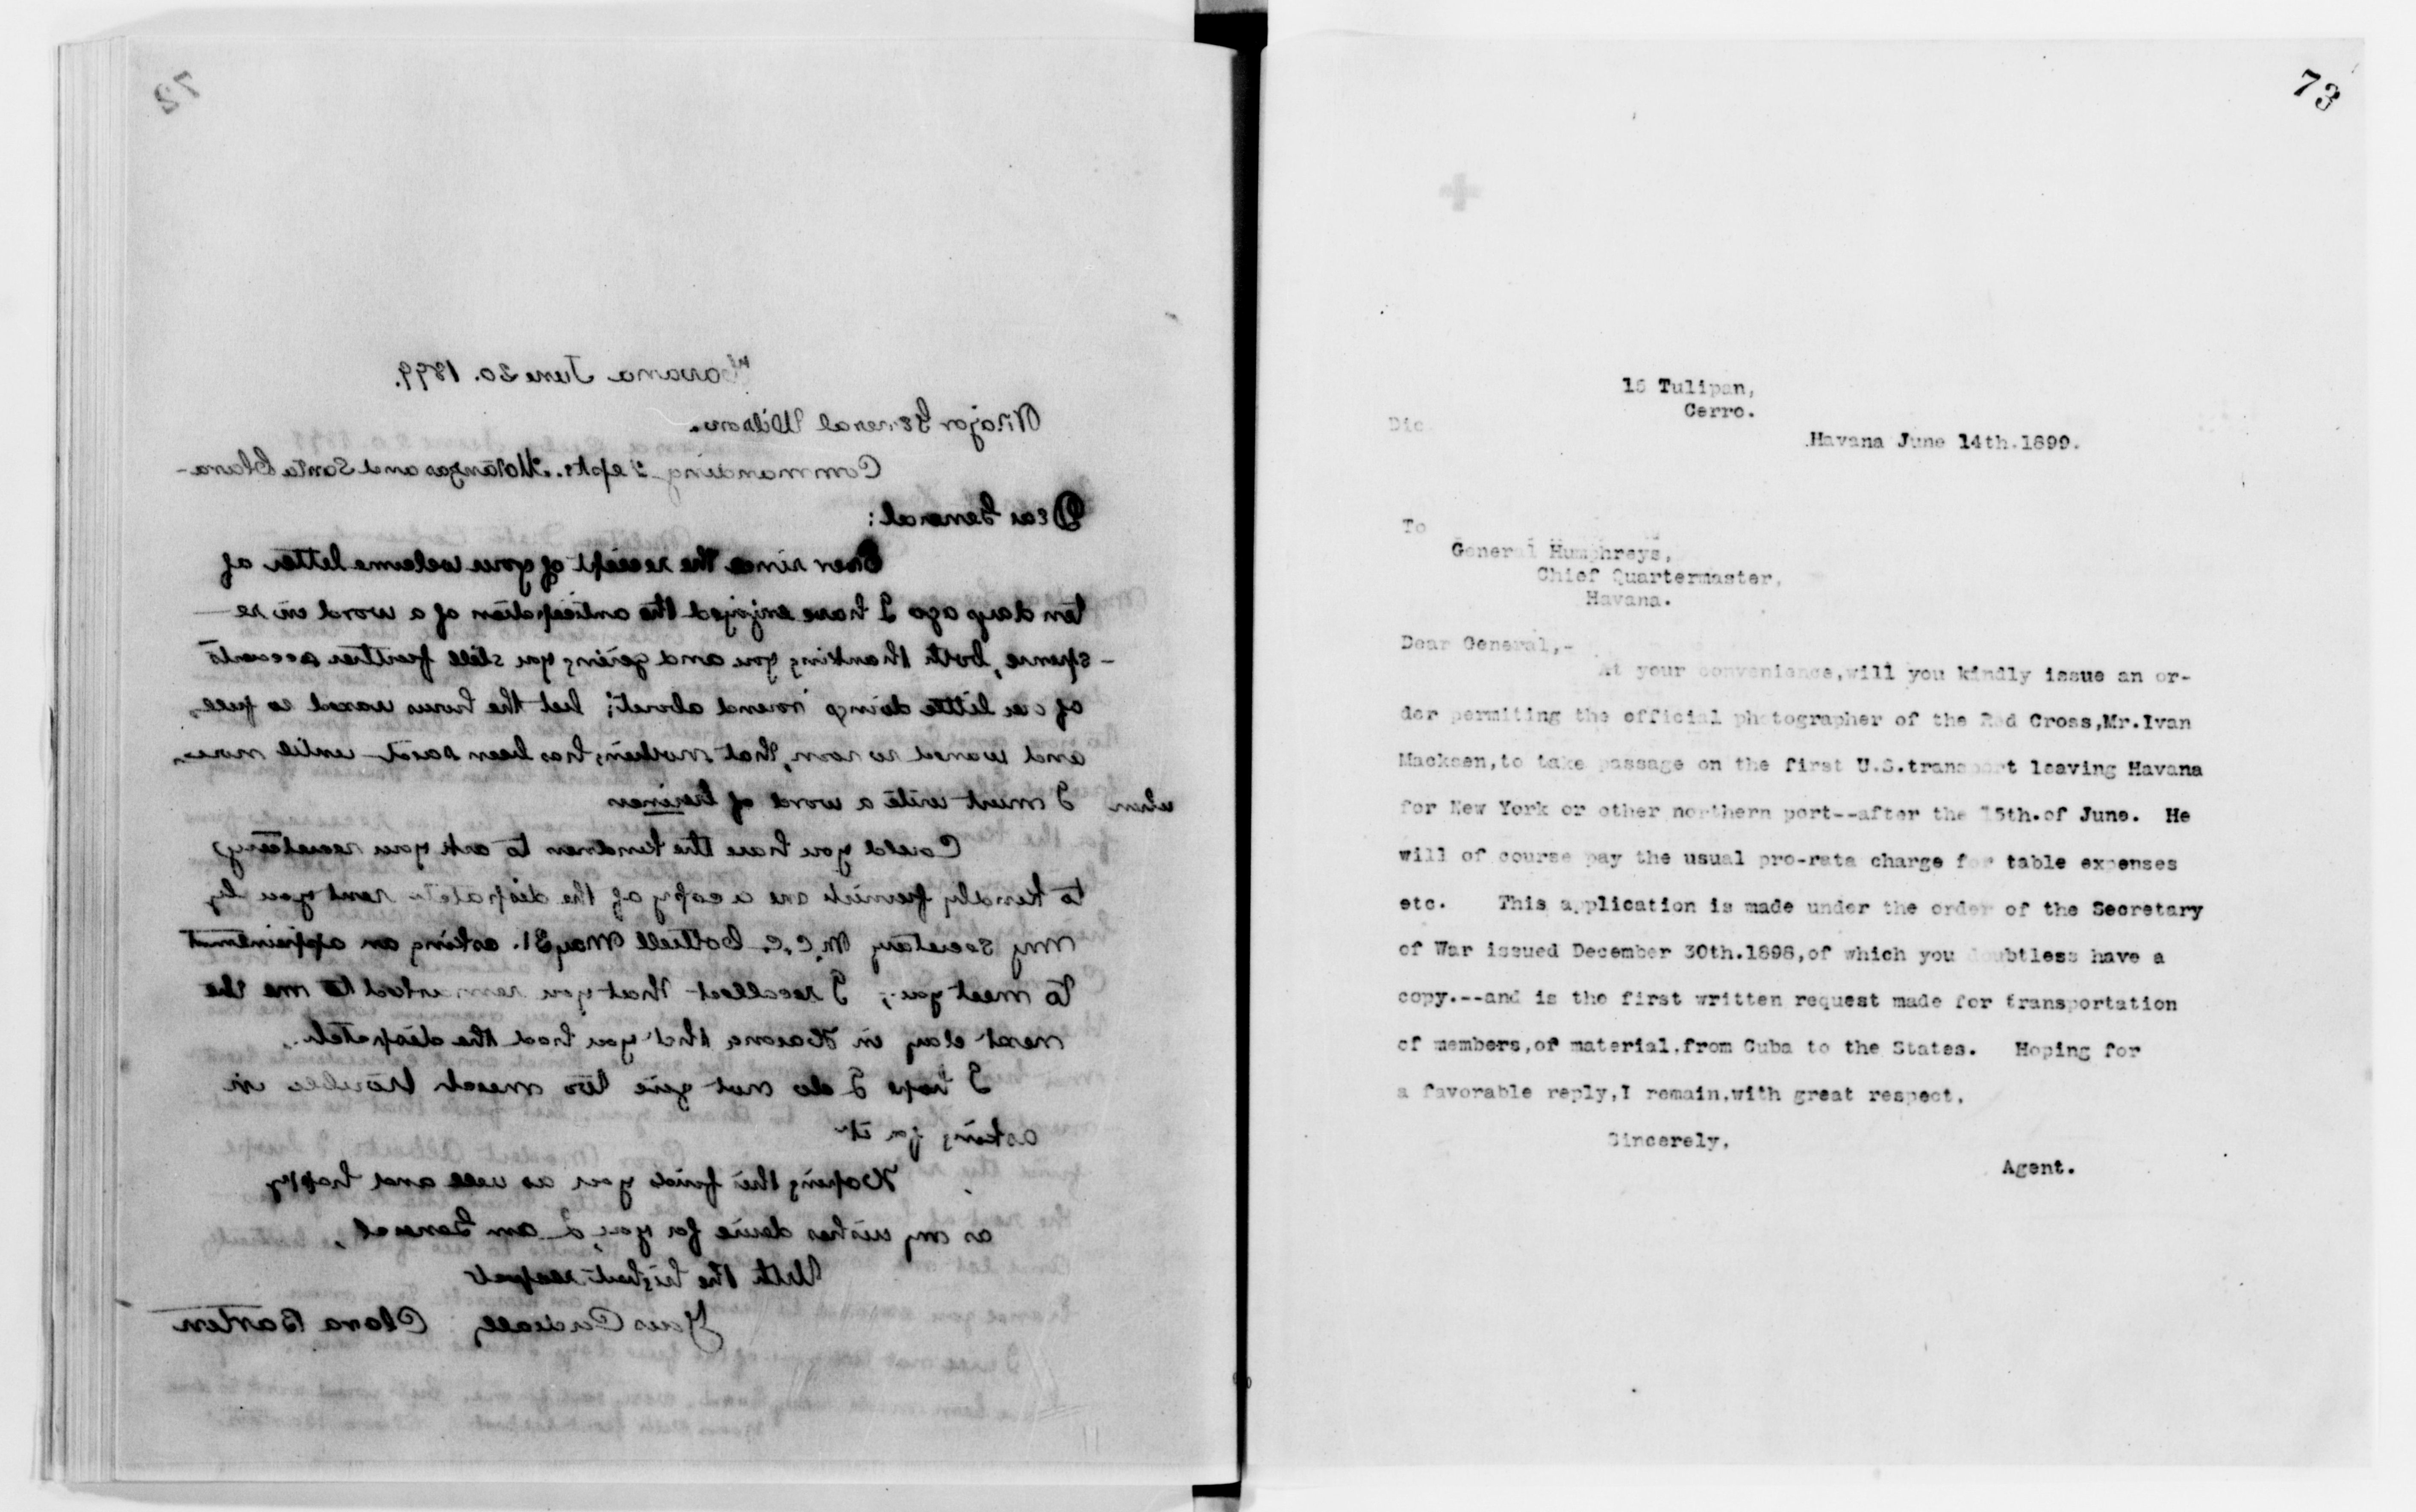 72
Havana June 20. 1899.
Major General Wilson.
Commanding Depts. Matanzas and Santa Clara-
Dear General:
Ever since the receipt of your welcome letter of
ten days ago I have enjoyed the anticipation of a word in re
-sponse, both thanking you and giving you still further accounts
of our little doings round about; but the hours waxed so full,
and waned so soon, that nothing has been said until now,
when I must write a word of business
Could you have the kindness to ask your secretary
to kindly furnish me a copy of the dispatch sent you by
my secretary Mr. C. C. Cottrell May 31. asking an appointment
to meet you; I recollect that you remarked to me the
next day in Havana that you had the dispatch.
I hope I do not give too much trouble in
asking for it
Hoping this finds you as well and happy
as my wishes desire for you, I am General,
With the highest respect
Yours Cordially Clara Barton
73
Dic.
15 Tulipan,
Cerro.
Havana June 14th.1899.
To
General Humphreys,
Chief Quartermaster,
Havana.
Dear General,-
At your convenience,will you kindly issue an or-
der permiting the official photographer of the Red Cross,Mr.Ivan
Macksen,to take passage on the first U.S.transport leaving Havana
for New York or other northern port--after the 15th.of June. He
will of course pay the usual pro-rata charge for table expenses
etc. This application is made under the order of the Secretary
of War issued December 30th.1898,of which you doubtless have a
copy.--and is the first written request made for transportation
of members,of material,from Cuba to the States. Hoping for
a favorable reply,I remain,with great respect,
Sincerely,
Agent.